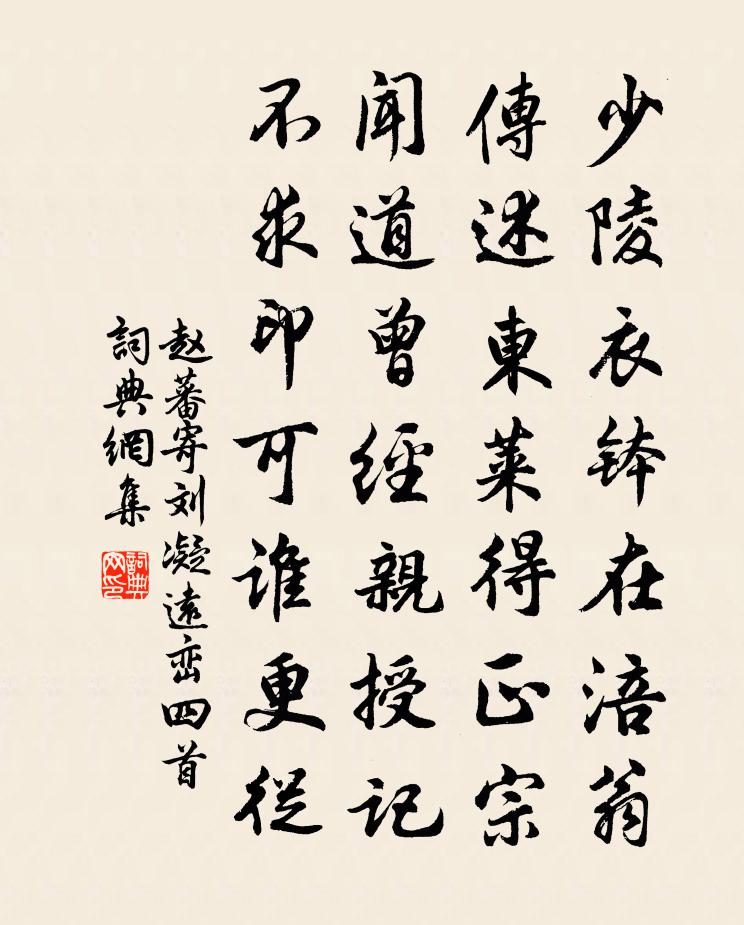 少陵衣钵在涪翁
傳述東萊得正宗
闻道曾經親授記
不求印可谁更從
赵蕃寄刘凝遠峦四首
詞典網集
詞典
网印